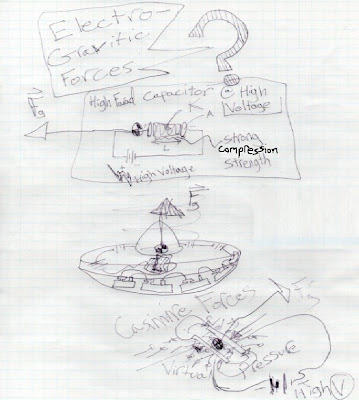 Electro-
Gravitic
Forces
?
High Farad Capacitor @ High
Voltage
Fg
K
A
L
strong
compression
strength
High Voltage
Fg
Casimire Forces
Fg
Virtual Pressure
High V